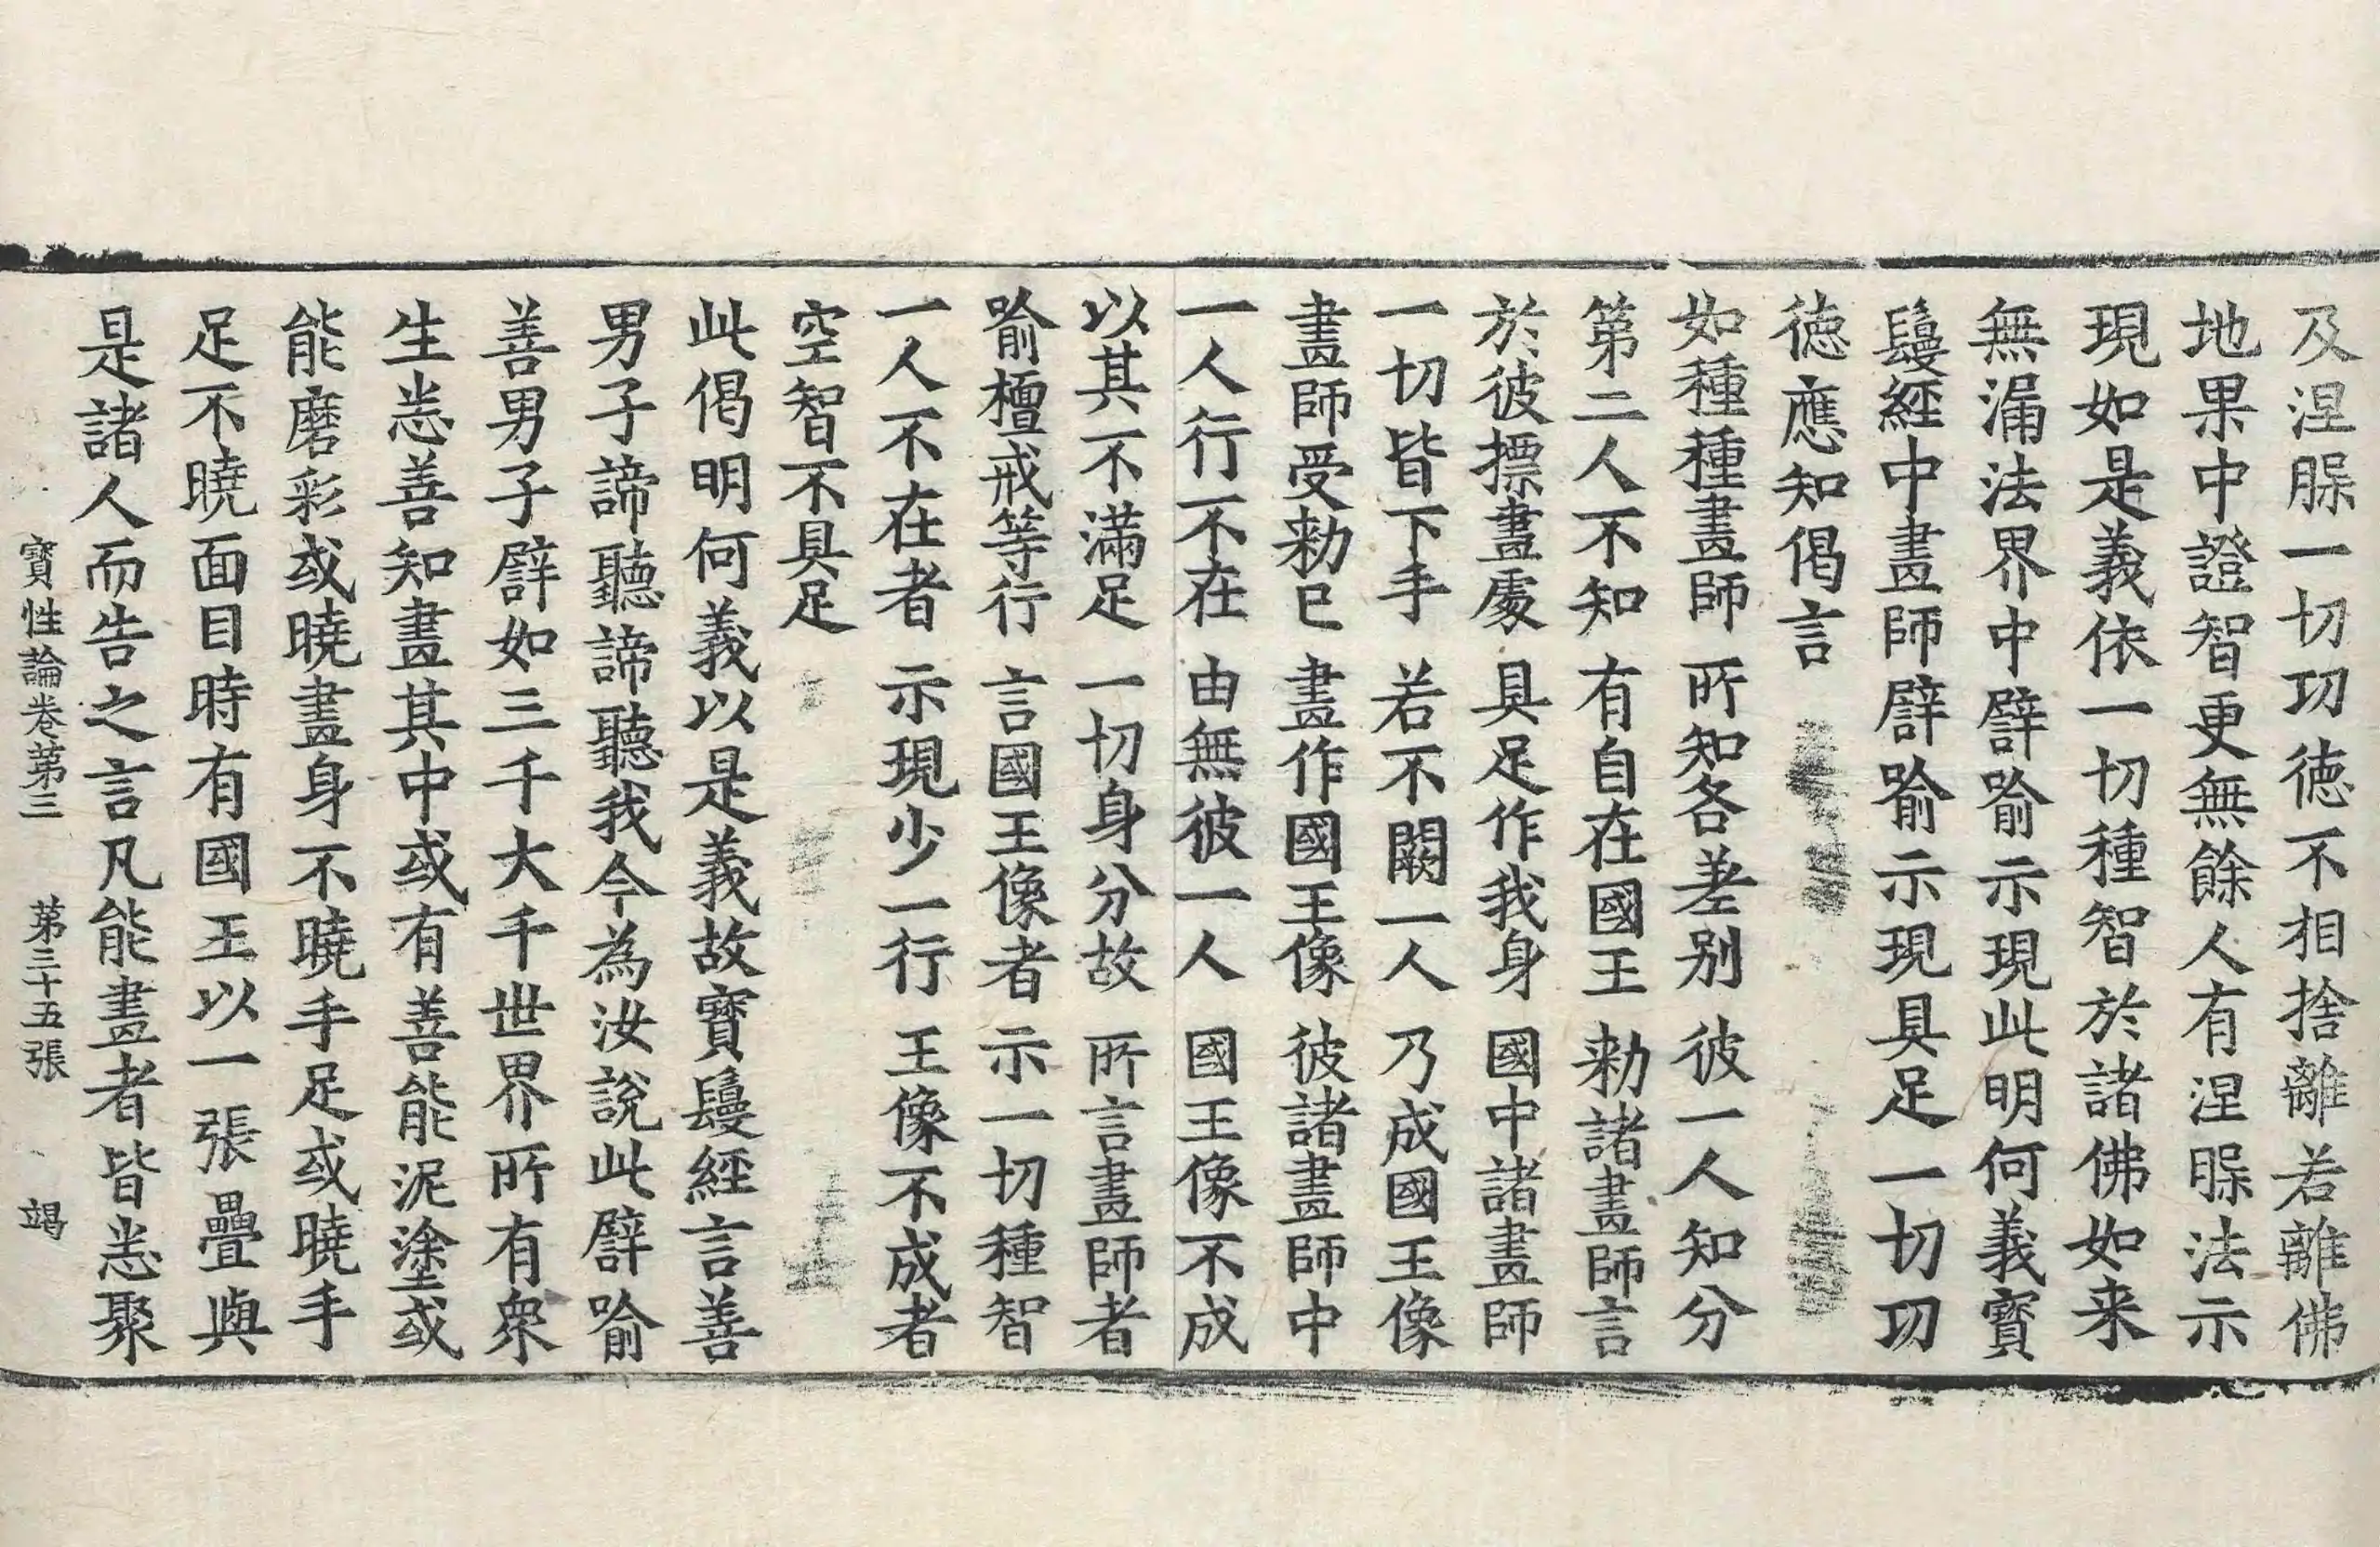 及涅脲一切功徳不相捨離若離佛
地果中證智更無餘人有涅脲法示
現如是義依一切種智於諸佛如来
無漏法界中譬喻示現此明何義寶
鬘經中畫師譬喻示現具足一切功
徳應知偈言
如種種畫師 所知各差别 彼一人知分
第二人不知 有自在國王 勑諸畫師言
於彼摽畫處 具足作我身 國中諸畫師
一切皆下手 若不闕一人 乃成國王像
畫師受勑已 畫作國王像 彼諸畫師中
一人行不在 由無彼一人 國王像不成
以其不滿足 一切身分故 所言畫師者
喻檀戒等行 言國王像者 示一切種智
一人不在者 示現少一行 王像不成者
空智不具足
此偈明何義以是義故寶鬘經言善
男子諦聽諦聽我今為汝說此譬喻
善男子譬如三千大千世界所有衆
生恙善知畫其中或有善能泥塗或
能磨彩或曉畫身不曉手足或曉手
足不曉面目時有國王以一張疊與
是諸人而告之言凡能畫者皆恙聚
寶性論卷第三 第三十五張 竭